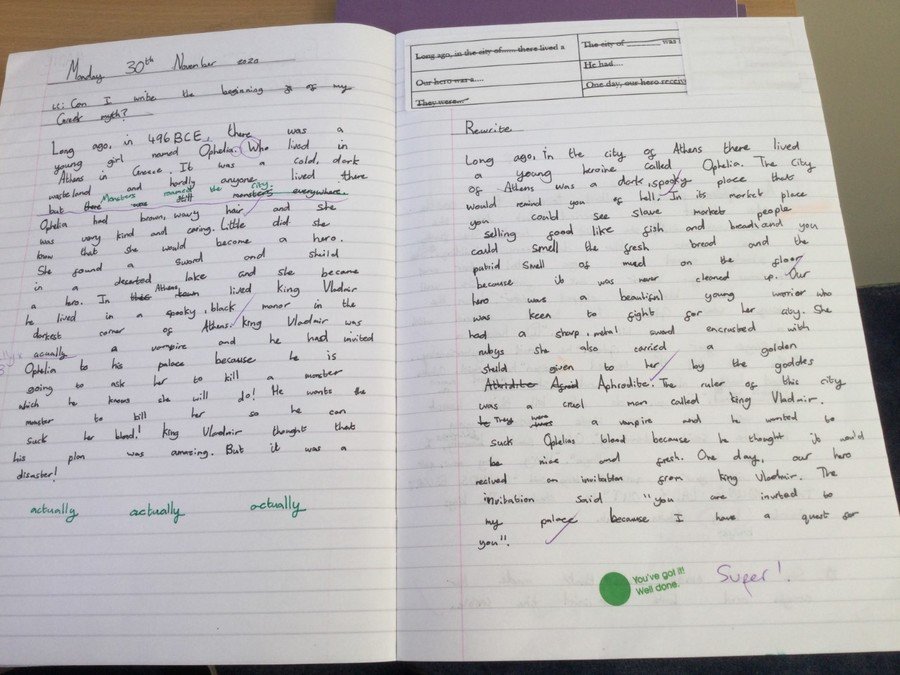 Monday 30th November 2020
LC: Can I write the beginning of my
Greek myth?
Long ago, in 496 BCE, there was a
young girl named Ophelia. Who lived in
Athens in Greece. It was a cold, dark
wasteland and hardly anyone lived there
Monsters roamed the city.
but there was still monsters everywhere.
Ophelia had brown, wavy hair and she
was very kind and caring. Little did she
know that she would become a hero.
She found a sword and sheild
in a deserted lake and she became
a hero. In this town Athens lived King Vladmir
he lived in a spooky, black manor in the
darkest corner of Athens. King Vladmir was
acually a vampire and he had invited
Ophelia to his palace because he is
going to ask her to kill a monster
which he knows she will do! He wants the
monster to kill her so he can
suck her blood! King Vladmir thought that
his plan was amazing. But it was a
disaster!
actually actually actually
Long ago, in the city of...... there lived a
The city of ________ was
Our hero was a....
He had....
They were...
One day, our hero receiv
Rewrite
Long ago, in the city of Athens there lived
a young heroine called Ophelia. The city
of Athens was a dark, spooky place that
would remind you of hell. In its market place
you could see slave market people
selling food like fish and bread and you
could smell the fresh bread and the
putrid smell of mud on the floor
because it was never cleaned up. Our
hero was a beautiful young worrior who
was keen to fight for her city. She
had a sharp, metal sword encrusted with
rubys she also carried a golden
sheild given to her by the goddes
Aphrodite. The ruler of this city
was a cruel man called King Vladmir.
he They were was a vampire and he wanted to
suck Ophelias blood because he thought it would
be nice and fresh. One day, our hero
recived an invitation from King Vladmir. The
invitation said "you are invited to
my palace because I have a quest for
you".
You've got it!
Well done.
Super!